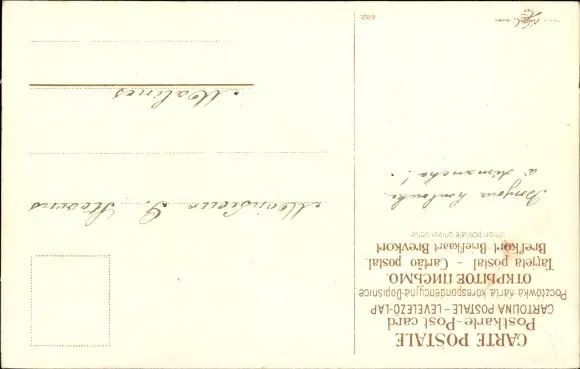 CARTE POSTALE
Postkarte-Post card
CARTOLINA POSTALE–LEVELEZÖ-LAP
Pocztówka-karta korespondencyjna-Dopisnice
ОТКРЫТОЕ ПИСЬМО.
Tarjeta postal – Cartão postal.
Brefkort-Briefkaart Brevkort
Union postale universelle
Bonjour
à dimanche !
Monsieur
Malines